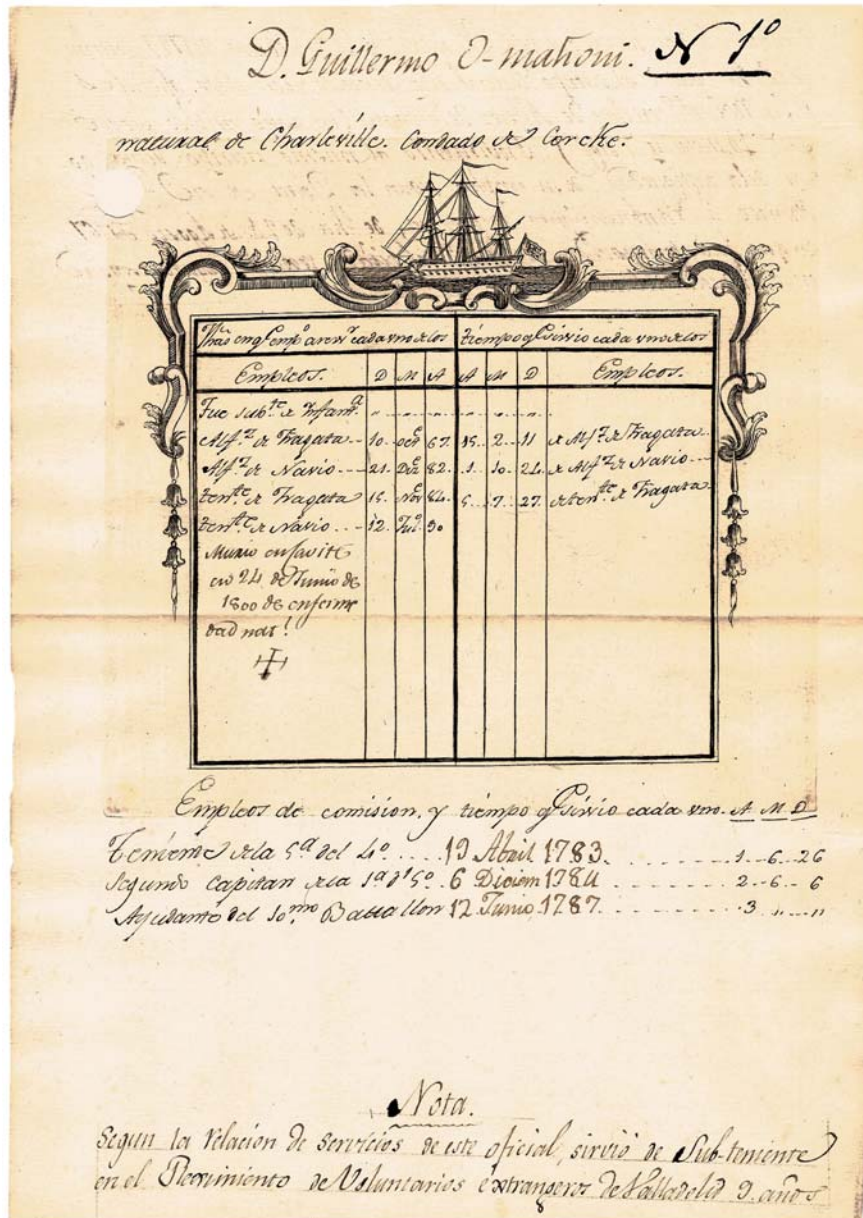 D. Guillermo O-mahoni. N 1º
natural de Charleville. Condado de Corcke.
tiempo q. sirvio cada uno de los
Empleos. D M A A M D Empleos.
Fue subte. de Infanª. " " " " " "
Alfz. de Fragata -- 10. 67. 15. 2. 11 de Alfz. de Fragata
Alfz. de Navio --- 21. Dre 82. 1. 10. 24. de Alfz. de Navio ---
tente. de Fragata 15. Nov 84. 5. 7. 27. de tente. de Fragata
tente. de Navio --- 12. Jul. 90
Murio en Cavite
en 24 de Junio de
1800 de enferme
dad nat!
Empleos de comision, y tiempo q. sirvio cada uno. A. M. D
Teniente de la 5ª del 4º .... 19 Abril 1783. - - - - 1--6--26
Segundo Capitan de la 1ª d! 5º. 6 Diciem 1784 - - - - 2--6--6
Ayudante del 10mo. Batallon 12 Junio, 1787. - - - - 3 " "
Nota.
Segun la relacion de servicios de este oficial, sirvió de Sub-teniente
en el de Voluntarios extrangeros de Valladolid 9. años